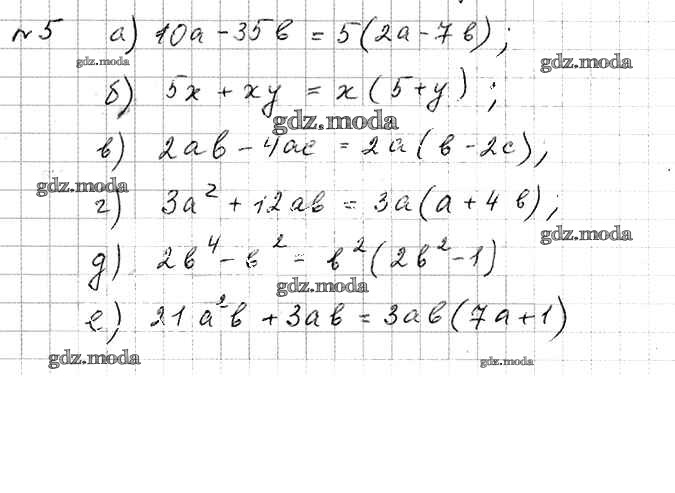 №5 а) 10a - 35b = 5(2a - 7b);
gdz.moda gdz.moda
б) 5x + xy = x(5 + y);
gdz.moda
в) 2ab - 4ac = 2a(b - 2c);
gdz.moda
г) 3a² + 12ab = 3a(a + 4b);
gdz.moda
д) 2b⁴ - b² = b²(2b² - 1)
gdz.moda
е) 21a²b + 3ab = 3ab(7a + 1)
gdz.moda gdz.moda